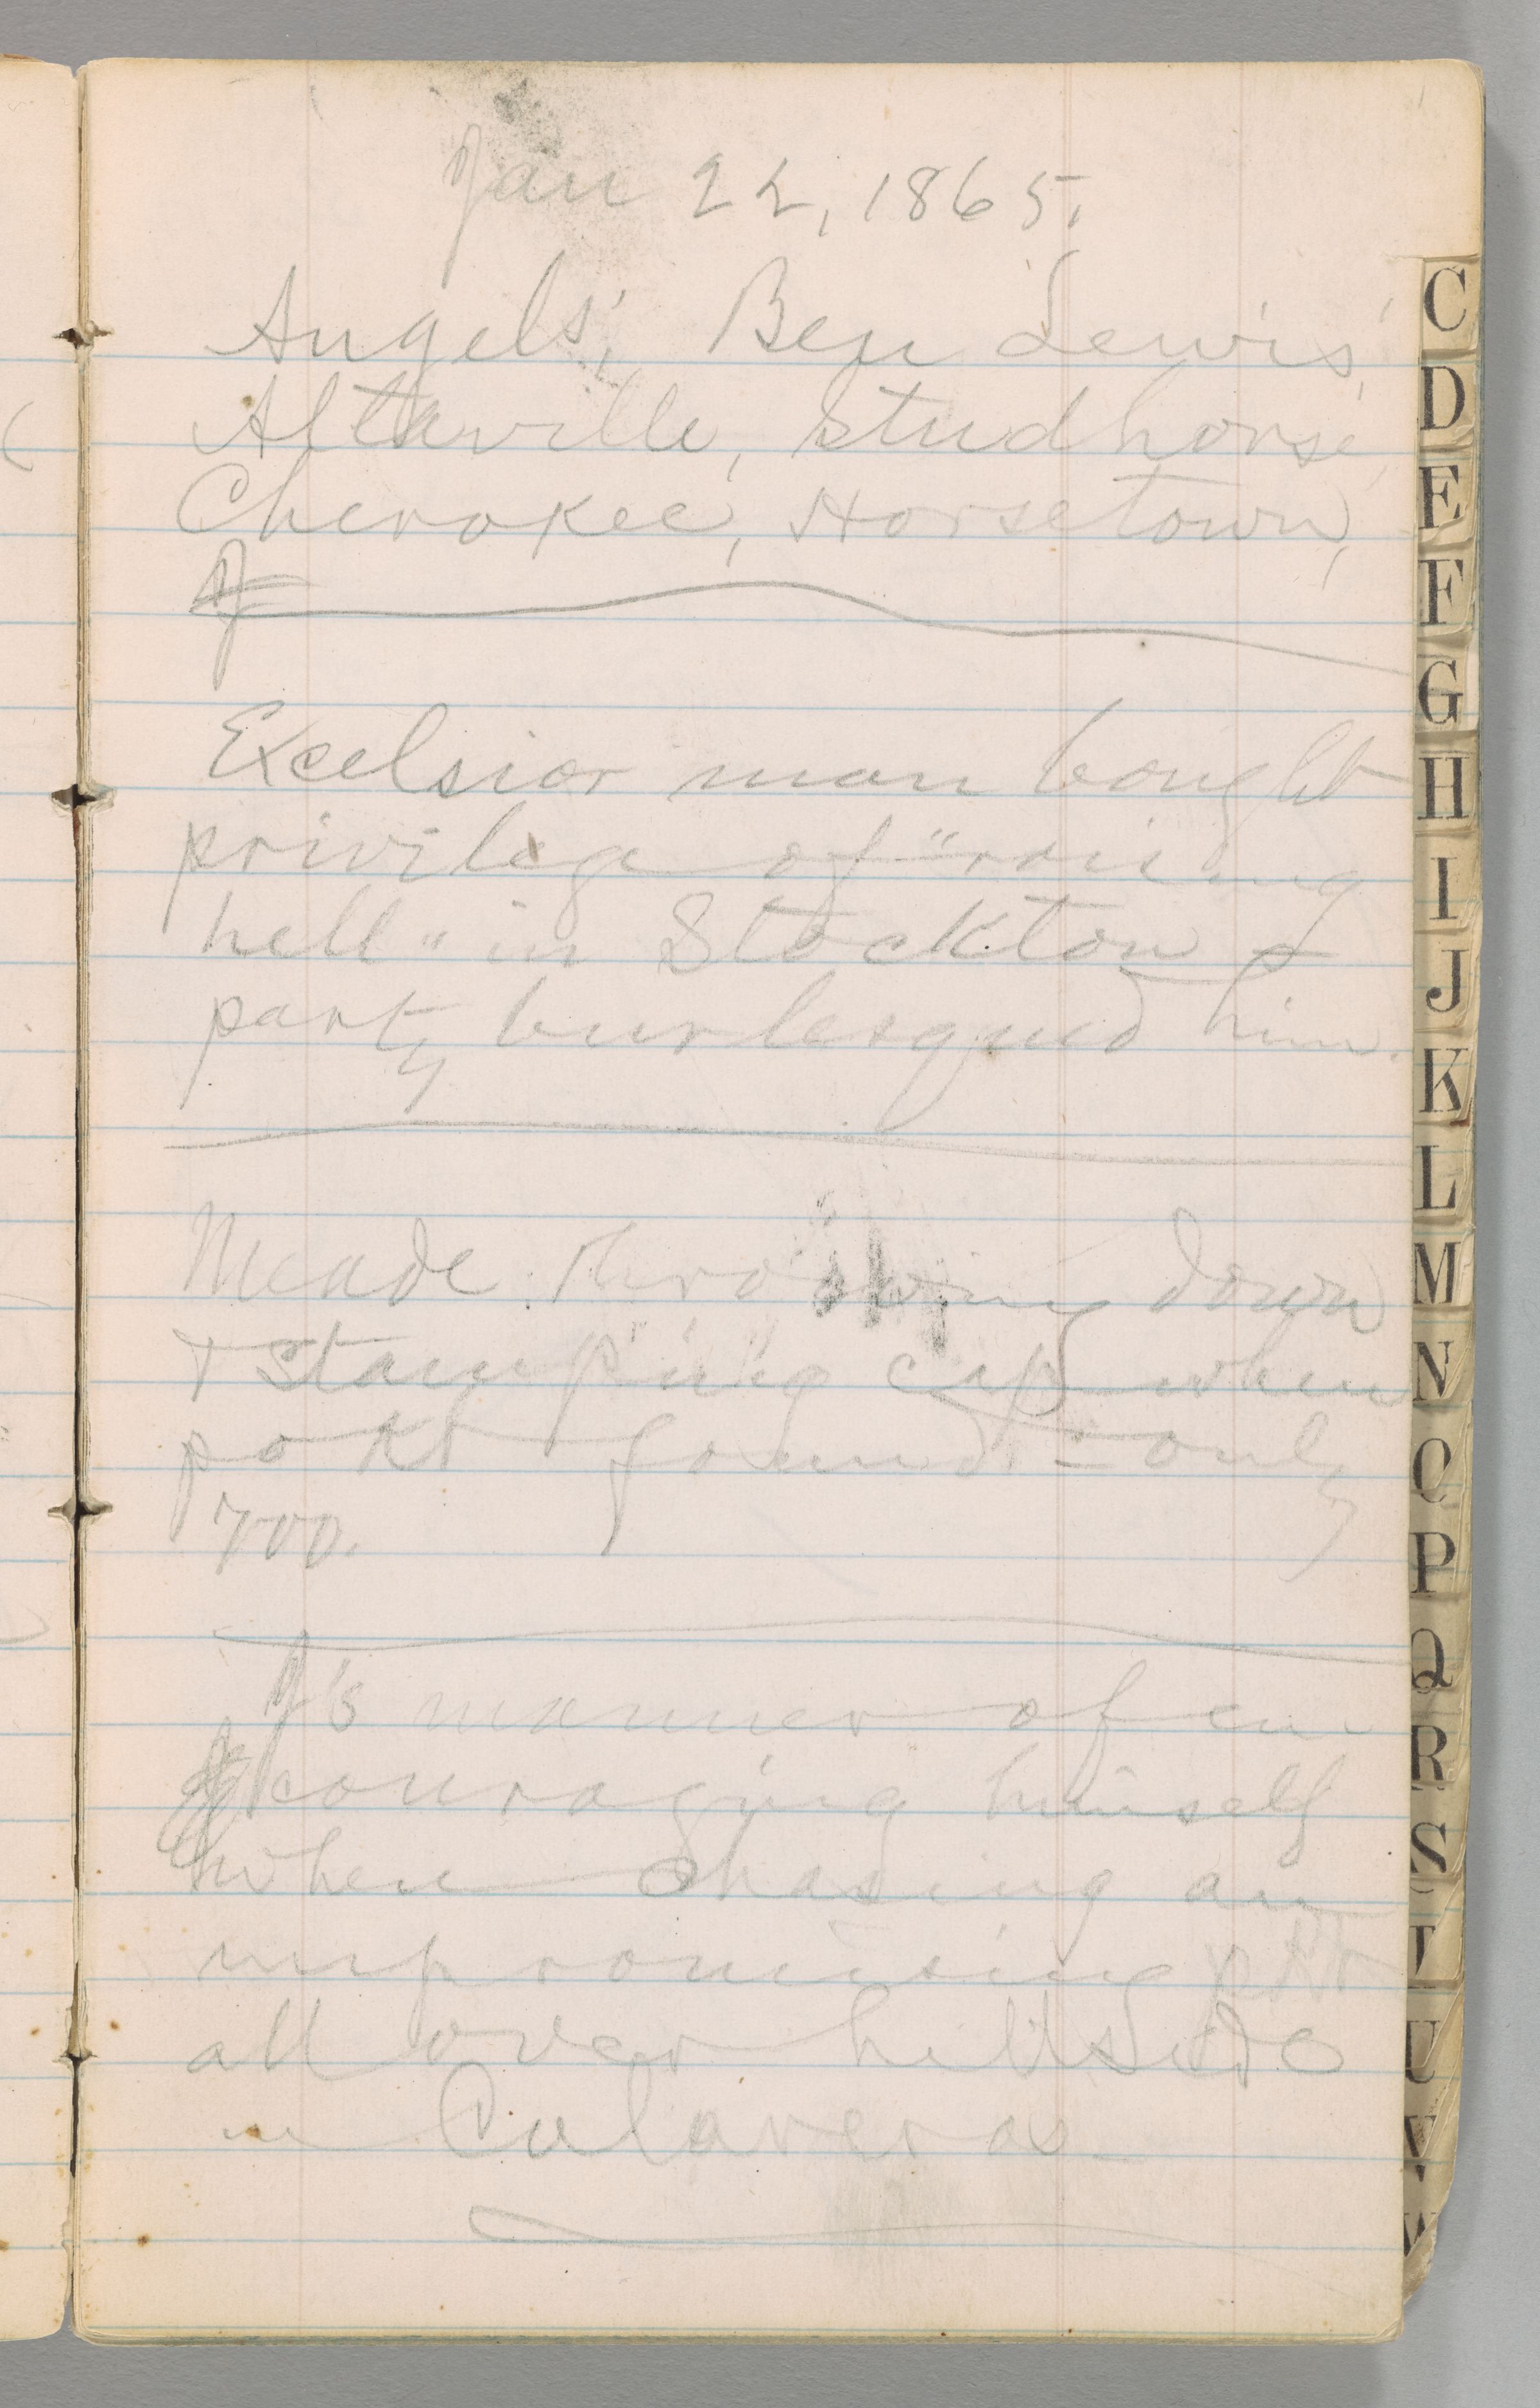 Jan 22, 1865.
Angels', Ben Lewis',
Altaville, Studhorse,
Cherokee, Horsetown,
Excelsior man bought
privilege of "raising
hell" in Stockton —
party burlesqued him.
Meade throwing down
& stamping cap when
pokt found — only
700.
J's manner of en
couraging himself
when chasing an
unpromising pkt
all over hillside
in Calaveras
C
D
E
F
G
H
I
J
K
L
M
N
O
P
Q
R
S
T
U
V
W